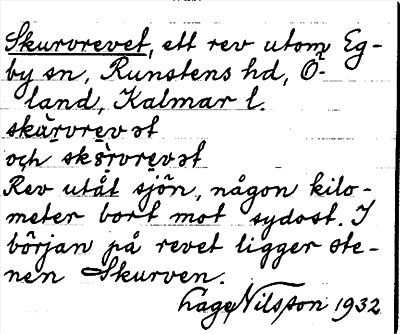 Skurvrevet, ett rev utom Eg-
by sn, Runstens hd, Ö-
land, Kalmar l.
skàr̥vre̥vət
och sks̀r̥vre̥vət
Rev utåt sjön, någon kilo-
meter bort mot sydost. I
början på revet ligger ste-
nen Skurven.
Lage Nilsson 1932